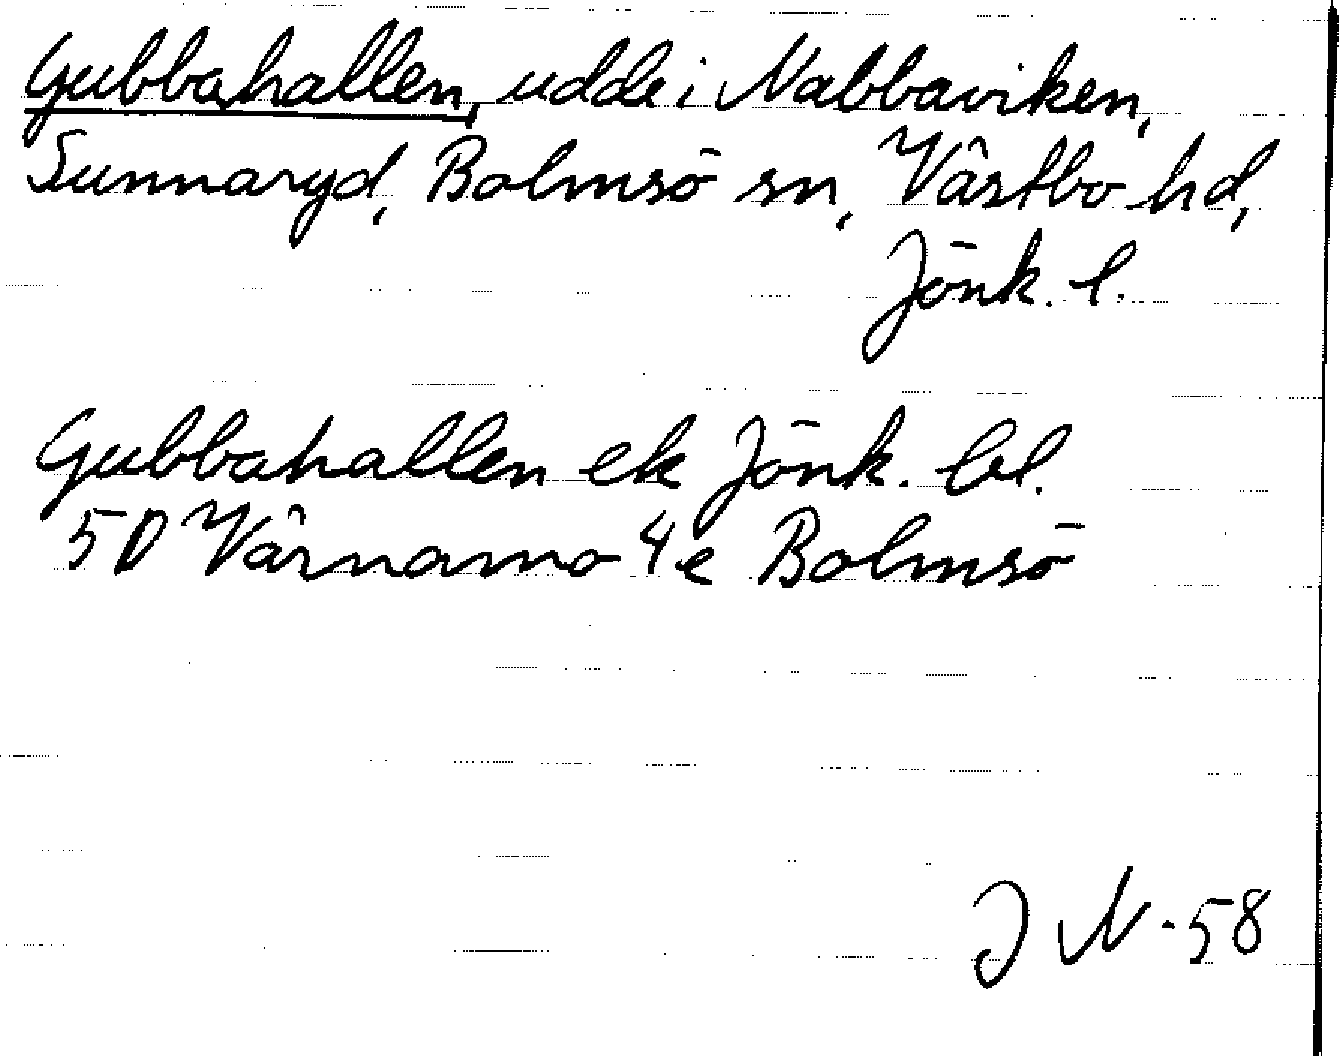 Gubbahallen, udde i Nabbaviken,
Sunnaryd, Bolmsö sn, Västbo hd,
Jönk. l.
Gubbahallen ek Jönk. bl.
5D Värnamo 4e Bolmsö
J N-58